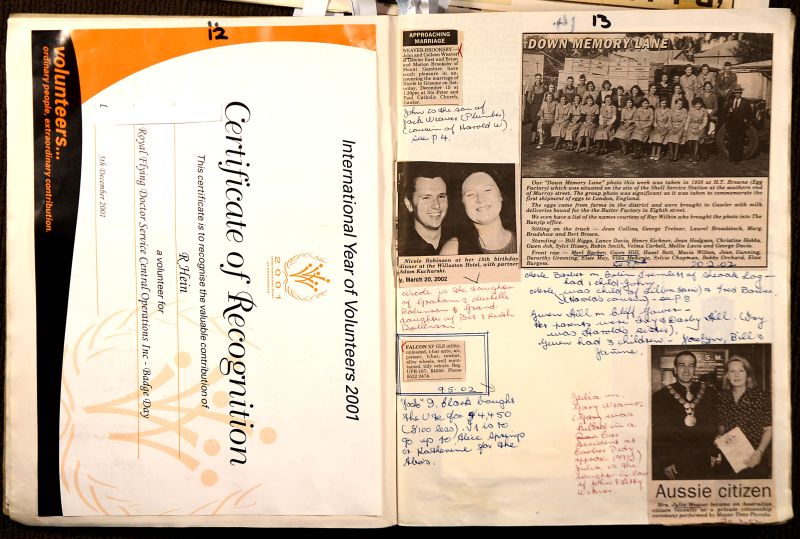 12
volunteers...
ordinary people, extraordinary contribution.
International Year of Volunteers 2001
2001
Certificate of Recognition
This certificate is to recognise the valuable contribution of
R Hein
a volunteer for
Royal Flying Doctor Service Central Operations Inc - Badge Day
5th December 2001
13
APPROACHING
MARRIAGE
WEAVER-BROOKSBY—
John and Colleen Weaver
of Gawler East and Brian
and Marion Brooksby of
Mount Gambier have
much pleasure in an-
nouncing the marriage of
Nicole to Graeme on Sat-
urday, December 15 at
1.30pm at Sts Peter and
Paul Catholic Church,
Gawler.
John is the son of
Jack Weaver (Plumber)
(cousin of Harold W).
see P 4.
Nicole Robinson at her 18th birthday
dinner at the Willaston Hotel, with partner
Adam Kucharski.
y, March 20, 2002
Nicole is the daughter
of Graham & Michelle
Robinson & Grand
daughter of Bet & Keith
Robinson.
FALCON XF GLS utility,
unleaded, t-bar auto, air,
p/steer, t/bar, towbar,
alloy wheels, well main-
tained, tidy vehicle. Reg.
UPR-167, $4550. Phone
8522 2474.
9.5.02
"Jack" D. Clark bought
the Ute for $4,450
($100 less). It is to
go up to Alice Springs
or Katherine for the
Abos.
DOWN MEMORY LANE
Our "Down Memory Lane" photo this week was taken in 1928 at H.T. Browns (Egg
Factory) which was situated on the site of the Shell Service Station at the southern end
of Murray street. The group photo was significant as it was taken to commemorate the
first shipment of eggs to London, England.
The eggs came from farms in the district and were brought to Gawler with milk
deliveries bound for the the Butter Factory in Eighth street.
We even have a list of the names courtesy of Ray Wilkin who brought the photo into The
Bunyip office.
Sitting on the truck — Jean Collins, George Treloar, Laurel Broadstock, Marg
Bradshaw and Bert Brown.
Standing — Bill Riggs, Lance Davis, Henry Eichner, Jean Hodgson, Christine Hobbs,
Gwen Ash, Sylvi Hissey, Robin Smith, Velma Corbell, Mollie Lavis and George Davis.
Front row — Merl Barber, Gwen Hill, Hazel Bott, Maisie Maton, Jean Gunning,
Dorothy Greening, Elsie May, Vida Mahony, Sylvie Chapman, Bobby Orchard, Elsie
Burgess.
Merle Barber m
had 1 child John.
Merle was child of & Fred Barber
(Harolds cousin) - see P 8
Gwen Hill m Cliff Gower -
Her parents were Ivy & Derby Hill. (Ivy
was Harolds sister).
Gwen had 3 children - Jocelyn, Bill &
Janine.
Julia m.
Gary Weaver,
(Gary was
killed in a
Race Car
accident at
Coober Pedy
approx 1998)
Julia is the
daughter in law
of John & Betty
Weaver.
Aussie citizen
Mrs. Julia Weaver became an Australian
citizen recently at a private citizenship
ceremony performed by Mayor Tony Piccolo.